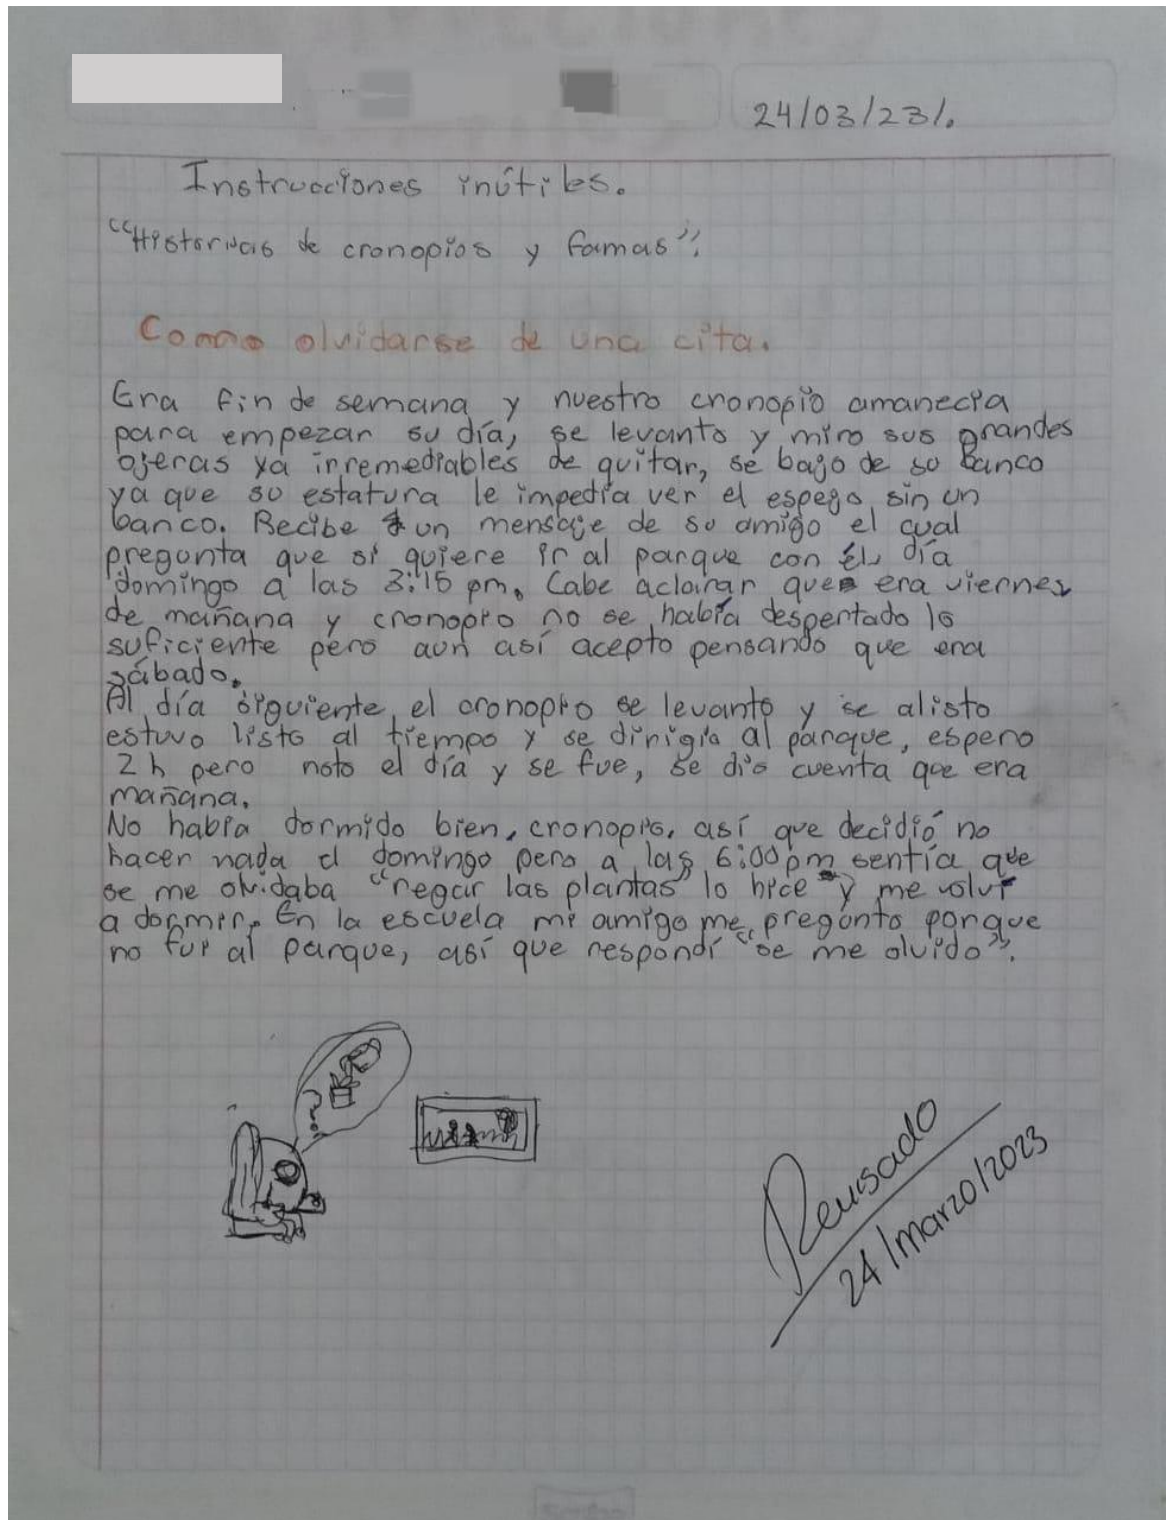 24/03/23/.
Instrucciones inútiles.
"Historias de cronopios y famas".
Como olvidarse de una cita.
Era fin de semana y nuestro cronopio amanecia
para empezar su día, se levanto y miro sus grandes
ojeras ya irremediables de quitar, se bajo de su banco
ya que su estatura le impedía ver el espejo sin un
banco. Recibe un mensaje de su amigo el cual
pregunta que si quiere ir al parque con él día
domingo a las 3:15 pm. Cabe aclarar que era viernes
de mañana y cronopio no se había despertado lo
suficiente pero aun así acepto pensando que era
sábado.
Al día siguiente el cronopio se levanto y se alisto
estuvo listo al tiempo y se dirigia al parque, espero
2 h pero noto el día y se fue, se dio cuenta que era
mañana.
No había dormido bien, cronopio, así que decidió no
hacer nada el domingo pero a las 6:00 pm sentía que
se me olvidaba "regar las plantas" lo hice y me volvi
a dormir. En la escuela mi amigo me pregunto porque
no fui al parque, así que respondí "se me olvido".
Revisado
24/marzo/2023